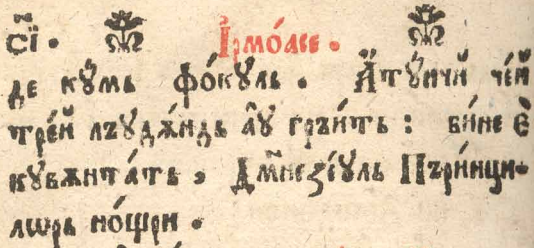 сп҃і. Ірмо́асе.
де кꙋ́мь фо́кꙋль. Атꙋ́нчй че́й
тре́й лъꙋдѫ́ндь а҆́ꙋ гръи́ть: бине е҆́
кꙋвѫнта́ть, Дм҃незе́ꙋль Пъри́нци-
лѡрь но́щри.